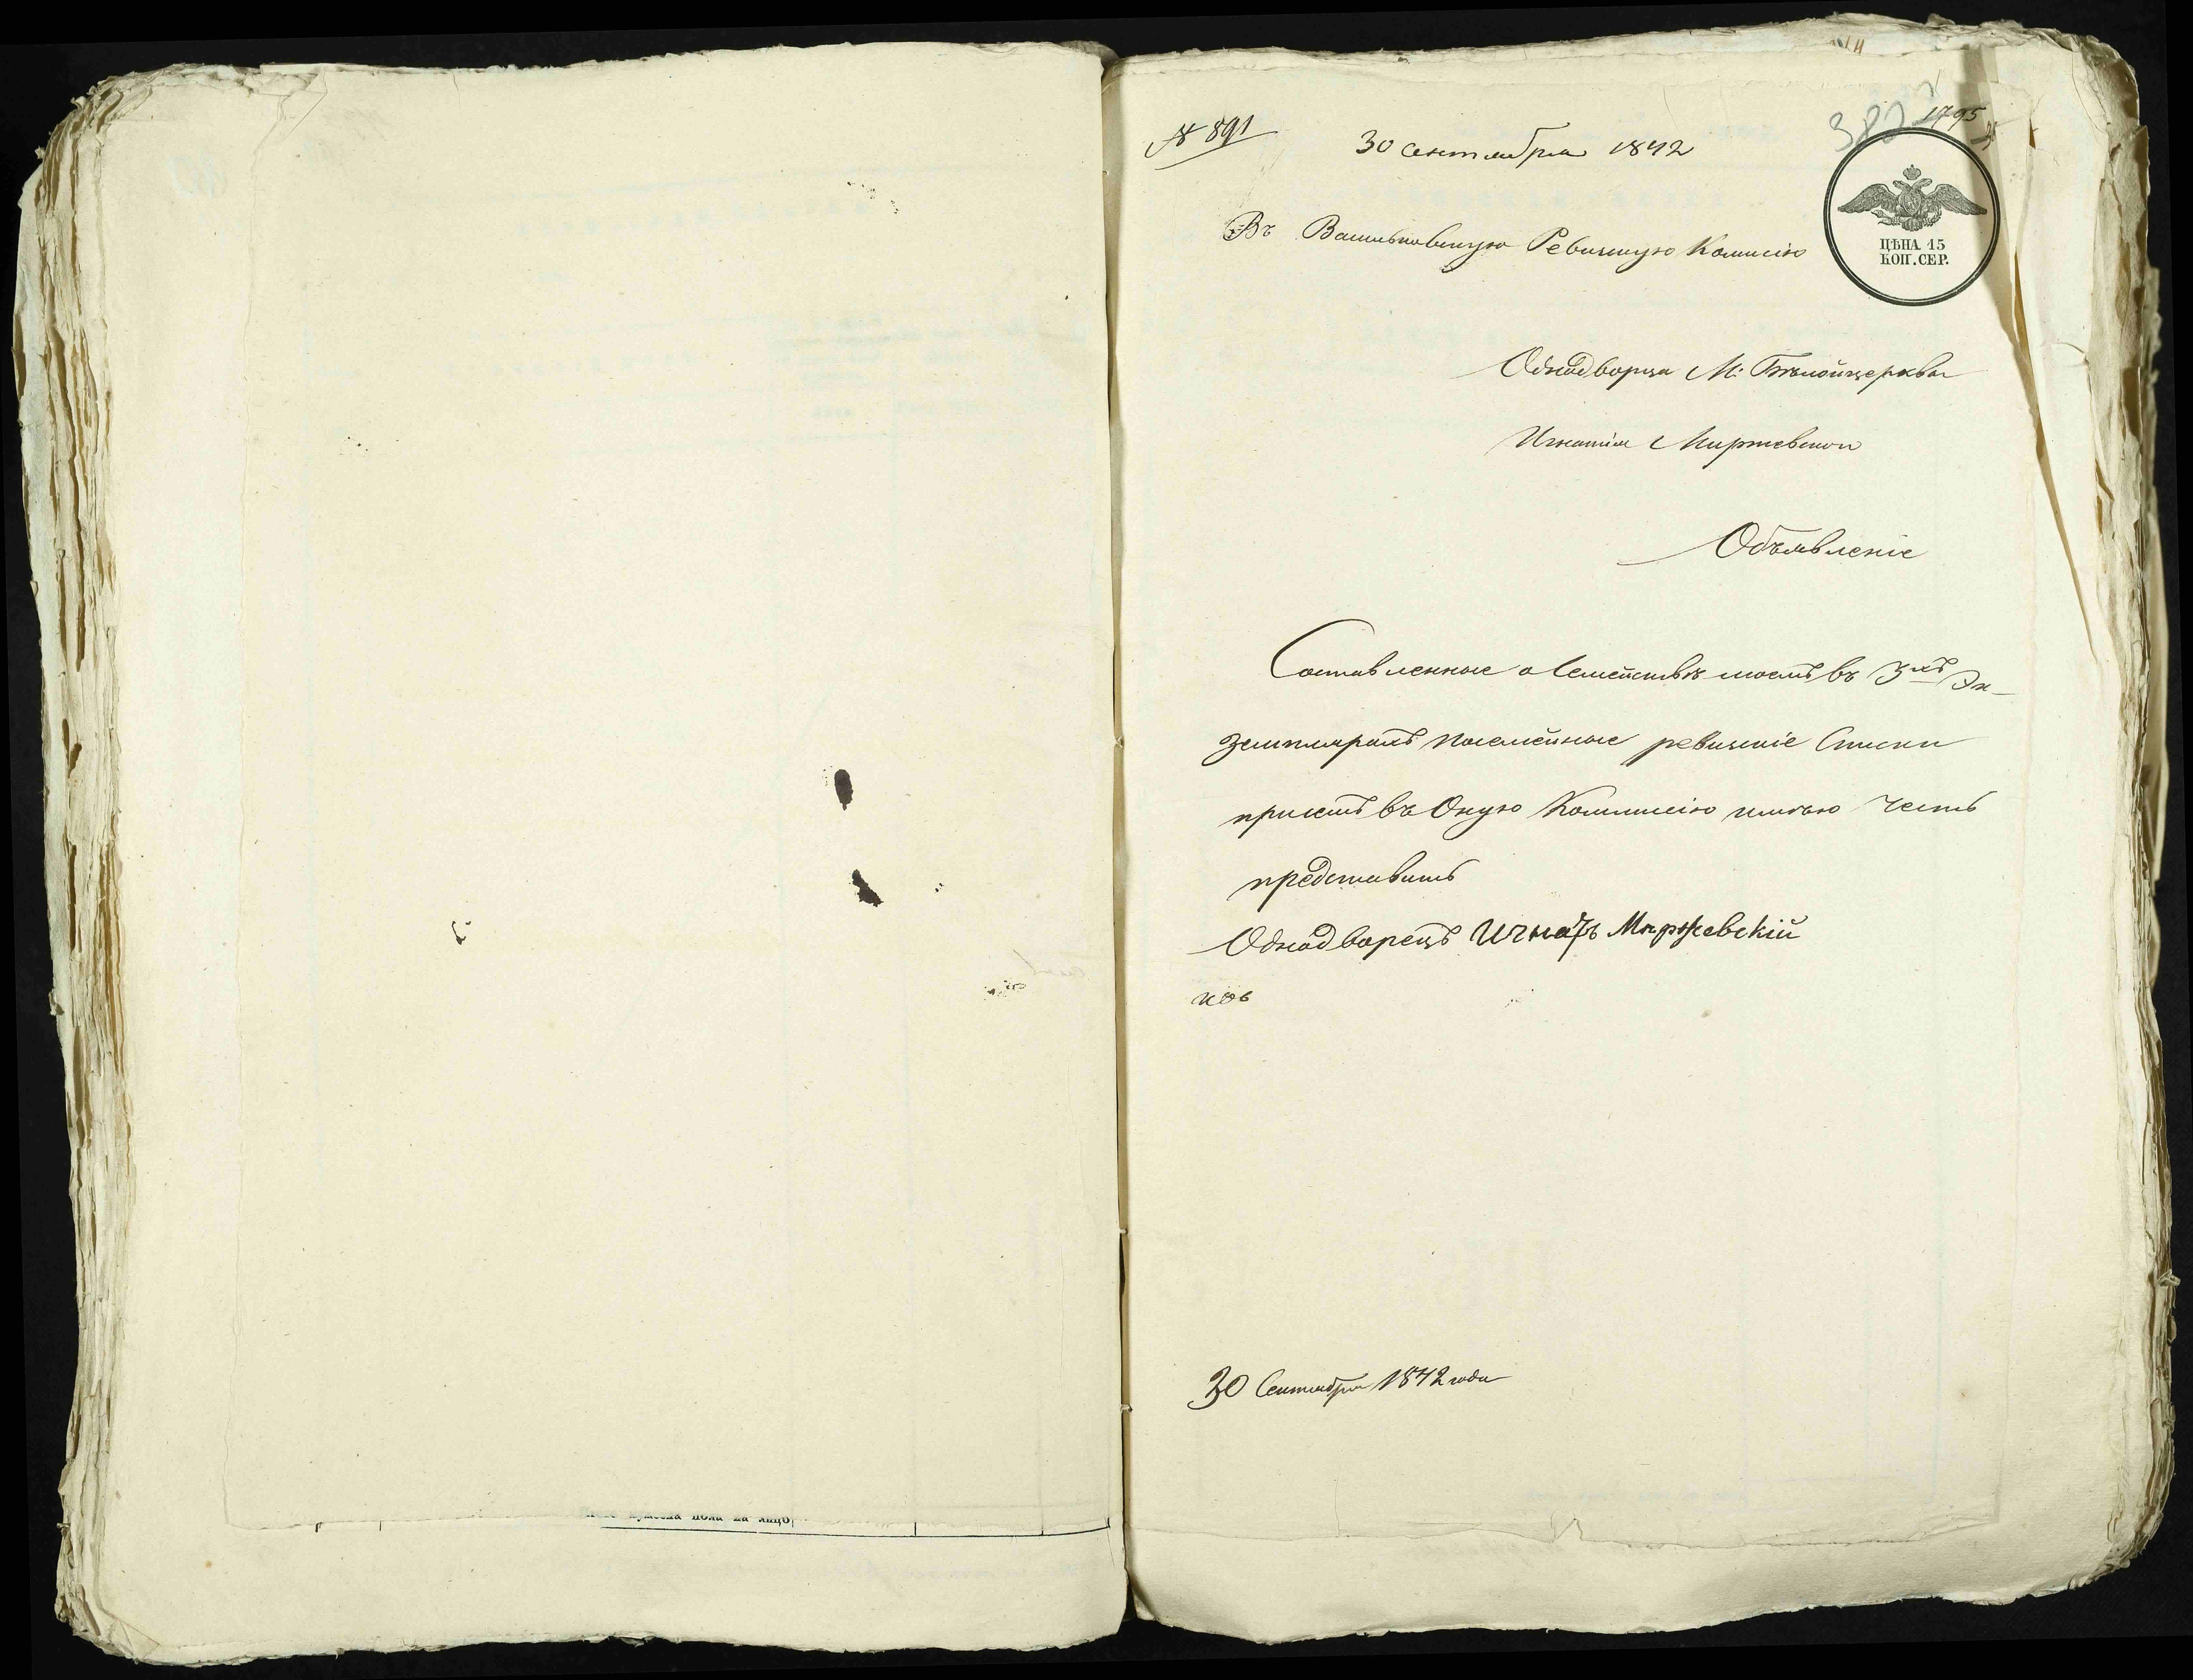 № 891
30 сентября 1842
1795
382
ЦѢНА 15
КОП. СЕР.
Въ Васильковскую Ревизскую Комисію
Однодворца М: Бѣлойцеркви
Игнатія Миржевского
Объявленіе
Составленные о Семействѣ моемъ въ 3хъ Эк-
земплярахъ посемейные ревизскіе Списки
присемъ въ Оную Коммисію имѣю честь
представить
Однодворецъ Игнатъ Миржевскій
30 Сентября 1842 года
мужеска пола на лицо